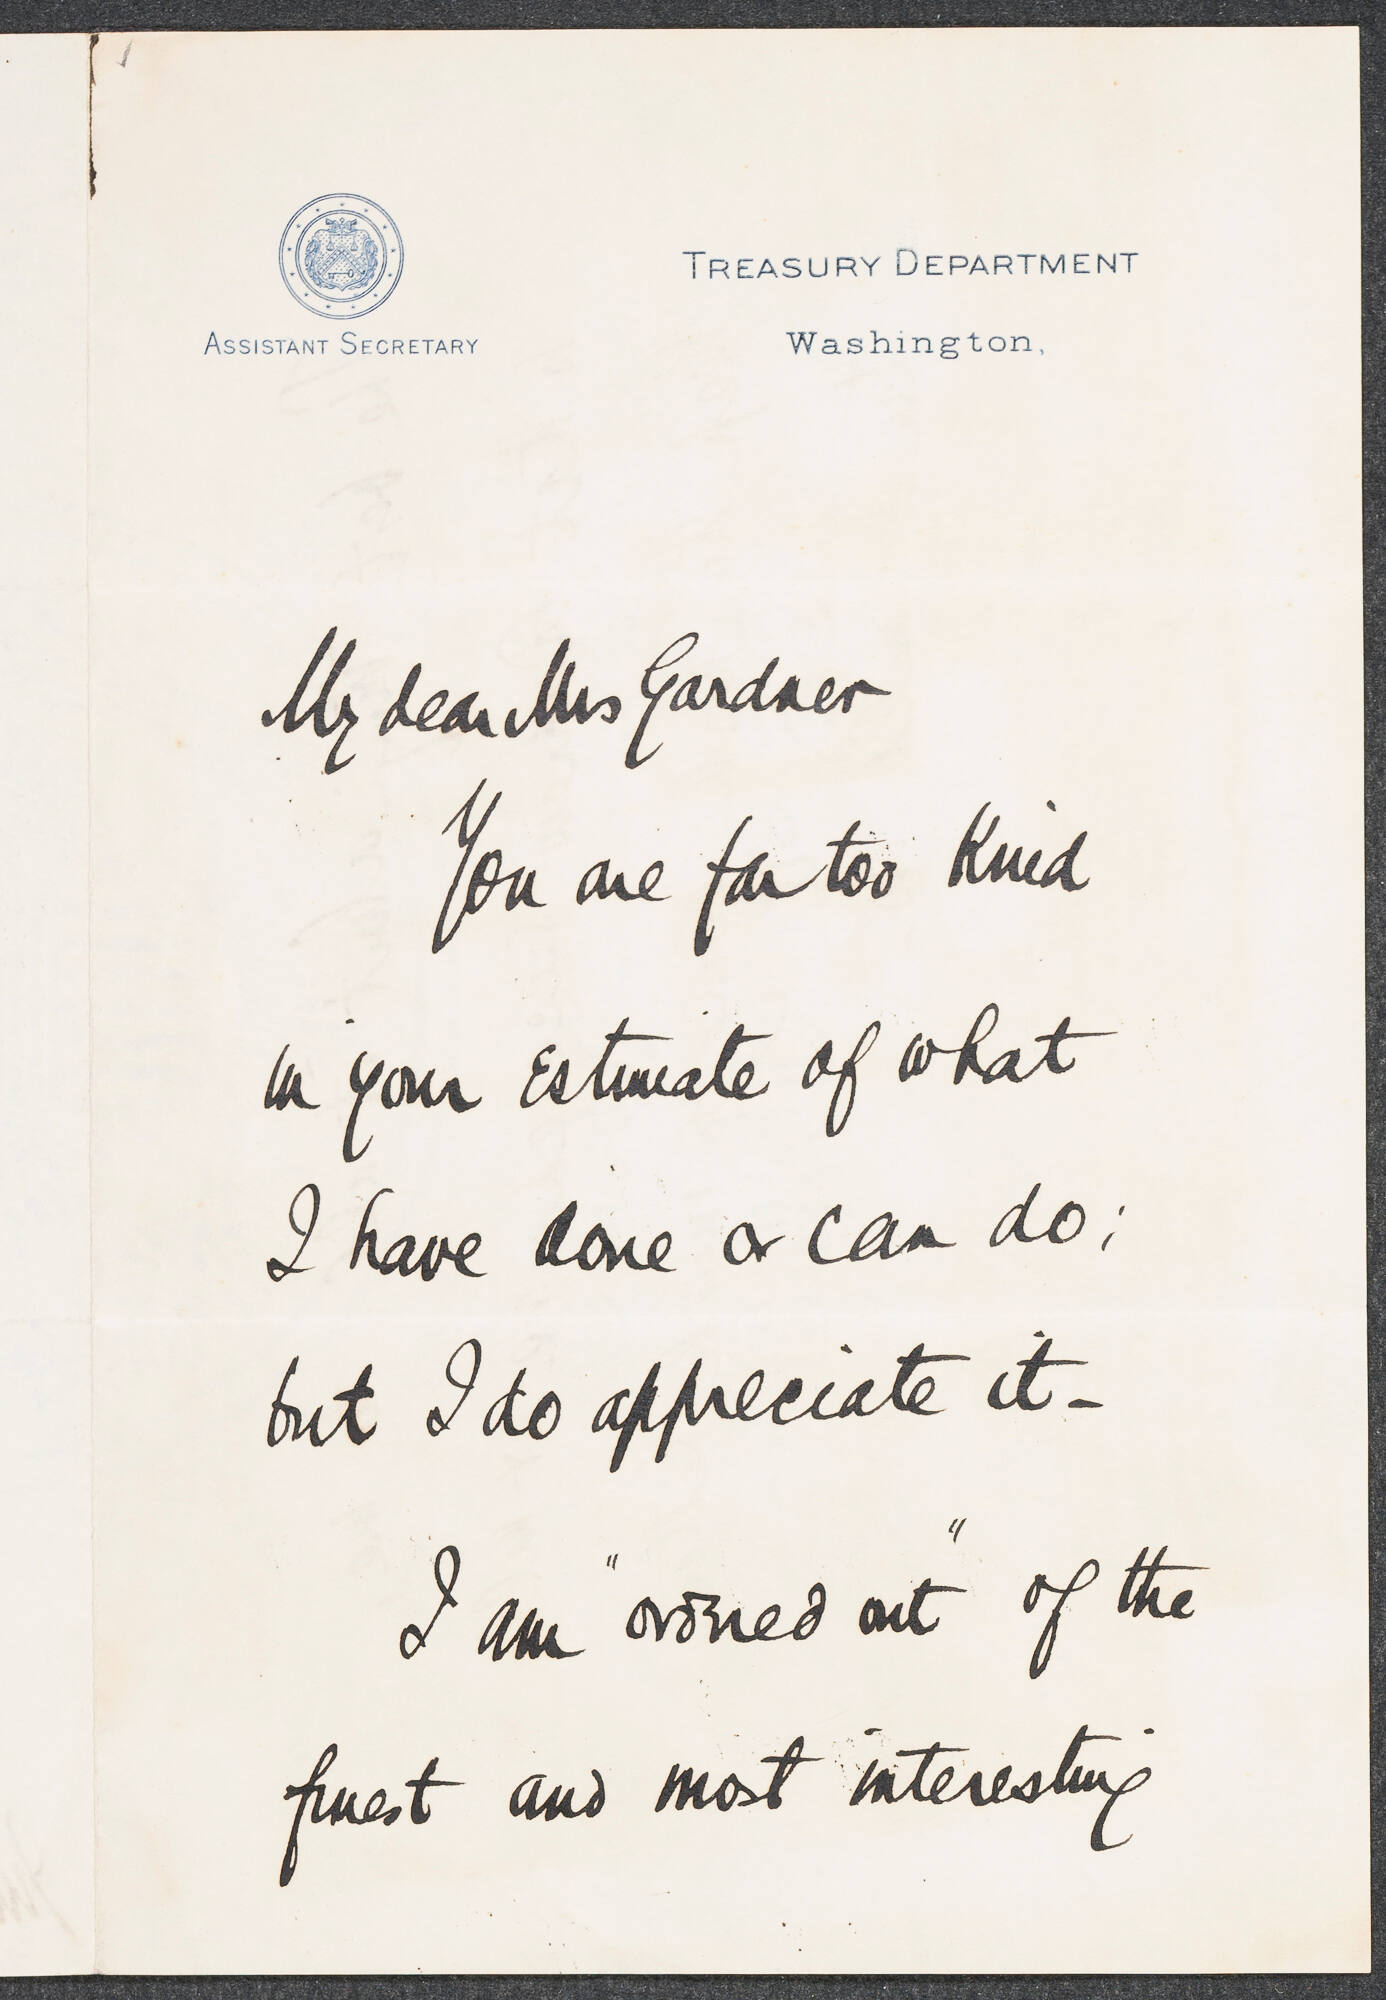 TREASURY DEPARTMENT
Washington,
ASSISTANT SECRETARY
My dear Mrs Gardner
You are far too kind
in your estimate of what
I have done or can do;
but I do appreciate it-
I am "ordned out" of the
finest and most interesting